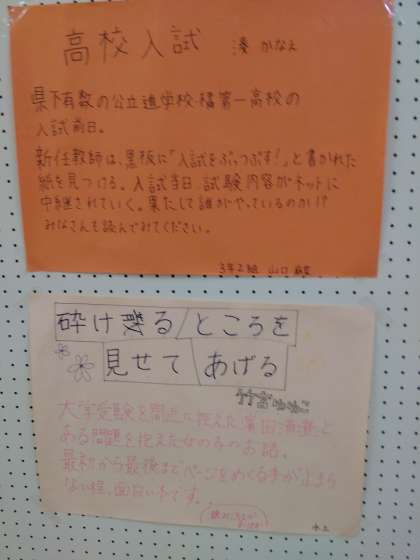 高校入試 湊かなえ
県下有数の公立進学校・橘第一高校の
入試前日。
新任教師は、黒板に「入試をぶっつぶす!」と書かれた
紙を見つける。入試当日、試験内容がネットに
中継されていく。果たして誰がやっているのか!?
みなさんも読んでみてください。
3年2組 山口
砕け散るところを
見せてあげる
竹宮ゆゆこ
大学受験を間近に控えた濱田清澄と
ある問題を抱えた女の子のお話。
最初から最後までページをめくる手が止まら
ない程、面白い本です。